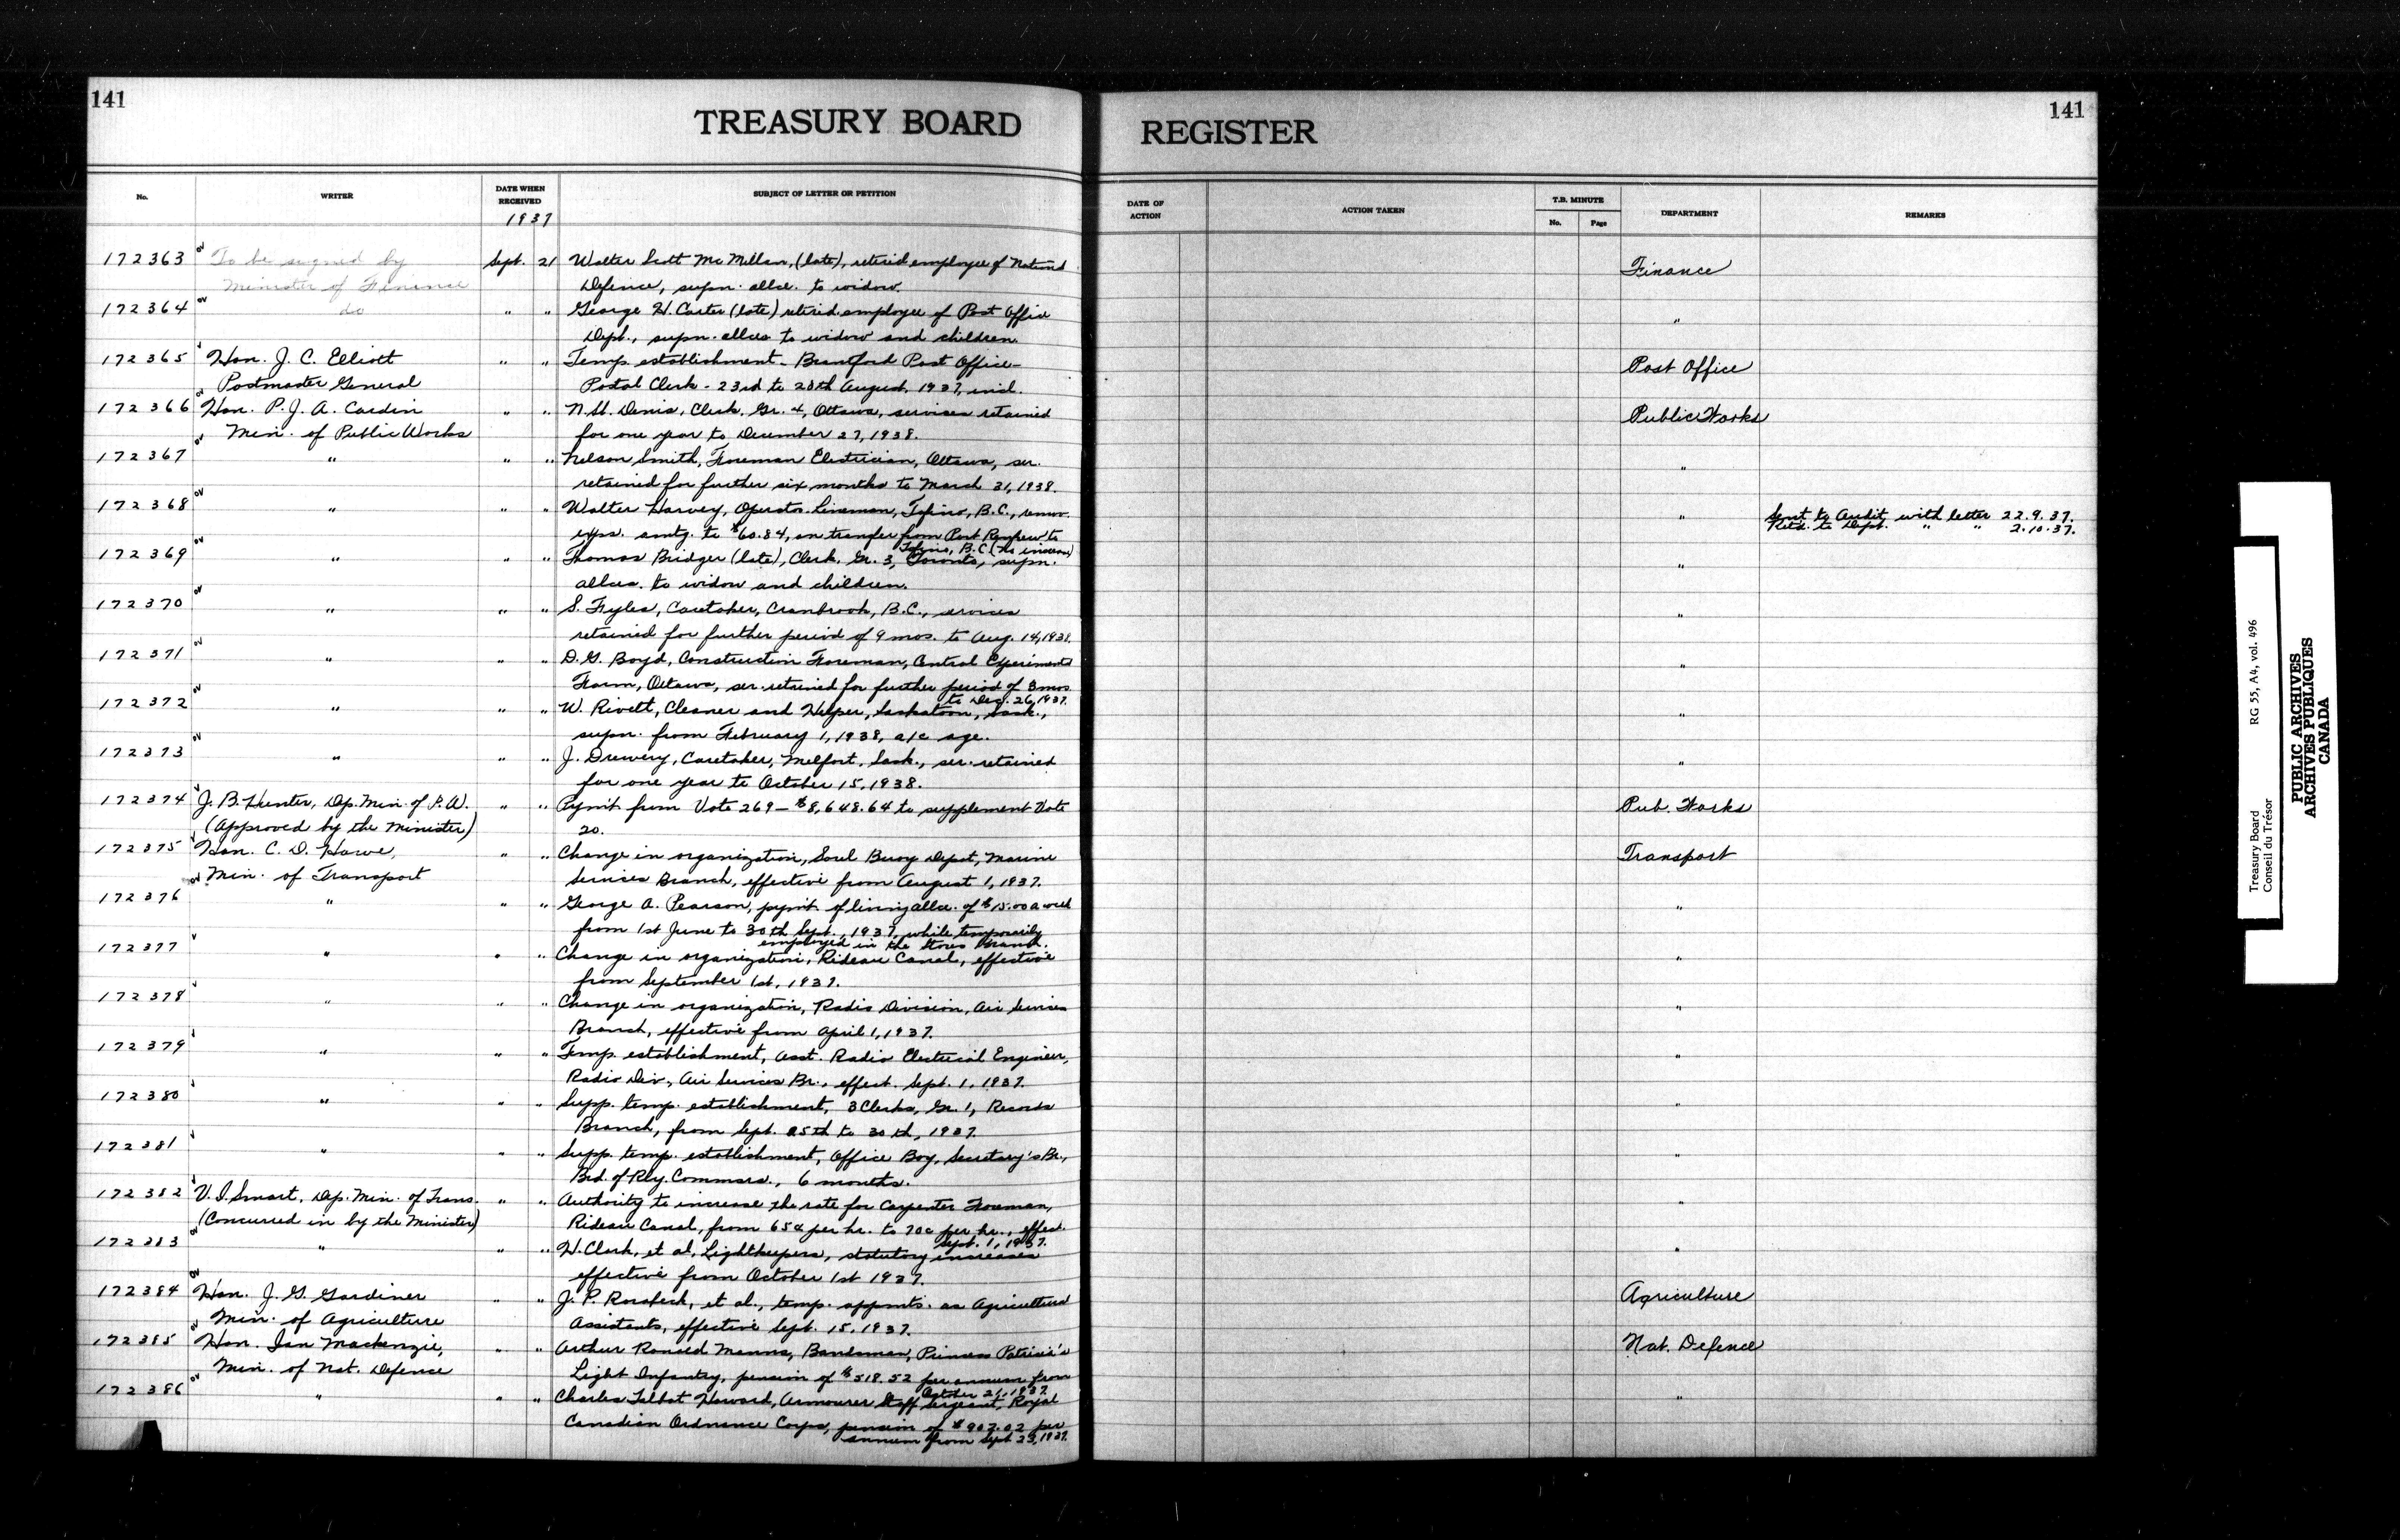 141
TREASURY BOARD
REGISTER
141
No.
WRITER
DATE WHEN RECEIVED
1937
SUBJECT OF LETTER OR PETITION
DATE OF ACTION
ACTION TAKEN
T.B. MINUTE
No.
Page
DEPARTMENT
REMARKS
172363 To be signed by Sept. 21 Walter Scott McMillan, (late), retired employee of National Finance
Minister of Finance Defence, supn. allce. to widow.
172364 do " " George H. Carter (late) retired employee of Post Office "
Dept., supn. allces to widow and children.
172365 Hon. J. C. Elliott " " Temp. establishment - Brantford Post Office - Post Office
Postmaster General Postal Clerk - 23rd to 28th August, 1937, incl.
172366 Hon. P. J. A. Cardin " " N. U. Denis, Clerk, Gr. 4, Ottawa, services retained Public Works
Min. of Public Works for one year to December 27, 1938.
172367 " " " Nelson Smith, Foreman Electrician, Ottawa, ser. "
retained for further six months to March 31, 1938.
172368 " " " Walter Harvey, Operator Lineman, Tofino, B.C., remov. " Sent to Audit with letter 22.9.37.
exps. amtg. to $60.84, on transfer from Port Renfrew to Retd. to Dept. " " 2.10.37.
Tofino, B.C. (No increase)
172369 " " " Thomas Bridger (late), Clerk, Gr. 3, Toronto, supn. "
allces. to widow and children.
172370 " " " S. Fyles, Caretaker, Cranbrook, B.C., services "
retained for further period of 9 mos. to Aug. 14, 1938.
172371 " " " D. G. Boyd, Construction Foreman, Central Experimental "
Farm, Ottawa, ser. retained for further period of 3 mos
to Dec. 26, 1937.
172372 " " " W. Rivett, Cleaner and Helper, Saskatoon, Sask., "
supn. from February 1, 1938, a/c age.
172373 " " " J. Drewery, Caretaker, Melfort, Sask., ser. retained "
for one year to October 15, 1938.
172374 J. B. Hunter, Dep. Min. of P. W. " " Pymt. from Vote 269 - $8,648.64 to supplement Vote Pub. Works
(Approved by the Minister) 20.
172375 Hon. C. D. Howe, " " Change in organization, Sorel Buoy Depot, Marine Transport
Min. of Transport Services Branch, effective from August 1, 1937.
172376 " " " George A. Pearson, pymt. of living allce. of $15.00 a week "
from 1st June to 30th Sept., 1937, while temporarily
employed in the Stores Branch.
172377 " " " Change in organization, Rideau Canal, effective "
from September 1st, 1937.
172378 " " " Change in organization, Radio Division, Air Services "
Branch, effective from April 1, 1937.
172379 " " " Temp. establishment, Asst. Radio Electrical Engineer, "
Radio Div., Air Services Br., effect. Sept. 1, 1937.
172380 " " " Supp. temp. establishment, 3 Clerks, Gr. 1, Records "
Branch, from Sept. 25th to 30th, 1937.
172381 " " " Supp. temp. establishment, Office Boy, Secretary's Br., "
Bd. of Rly. Commsrs., 6 months.
172382 V. I. Smart, Dep. Min. of Trans. " " Authority to increase the rate for Carpenter Foreman, "
(Concurred in by the Minister) Rideau Canal, from 65¢ per hr. to 70¢ per hr., effect.
Sept. 1, 1937.
172383 " " " H. Clark, et al, Lightkeepers, statutory increases "
effective from October 1st 1937.
172384 Hon. J. G. Gardiner " " J. P. et al., temp. appmts. as Agricultural Agriculture
Min. of Agriculture Assistants, effective Sept. 15, 1937.
172385 Hon. Ian Mackenzie, " " Arthur Ronald Manns, Bandsman, Princess Patricia's Nat. Defence
Min. of Nat. Defence Light Infantry, pension of $518.52 per annum from
October 21, 1937.
172386 " " " Charles Talbot Howard, Armourer Staff Sergeant, Royal "
Canadian Ordnance Corps, pension of $907.02 per
annum from Sept. 23, 1937.
Treasury Board RG 55, A4, vol. 496
Conseil du Trésor
PUBLIC ARCHIVES
ARCHIVES PUBLIQUES
CANADA